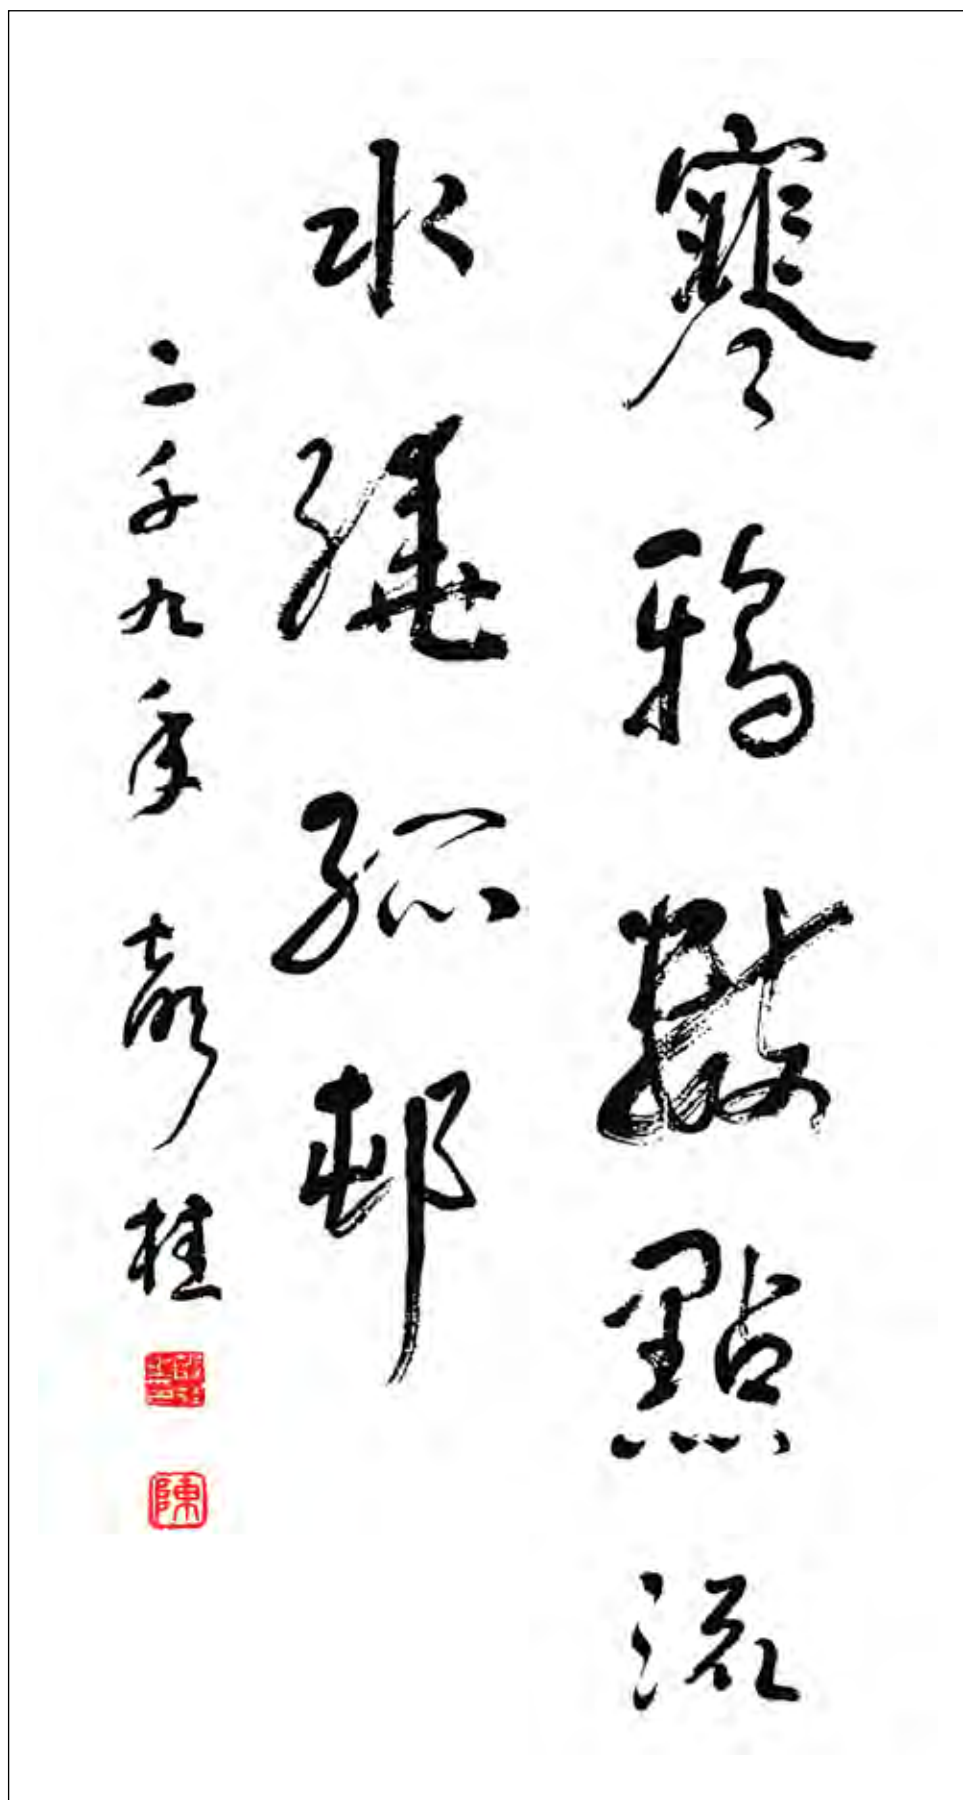 寒鴉數點流
水繞孤邨
二千九年 嘉桂
陳